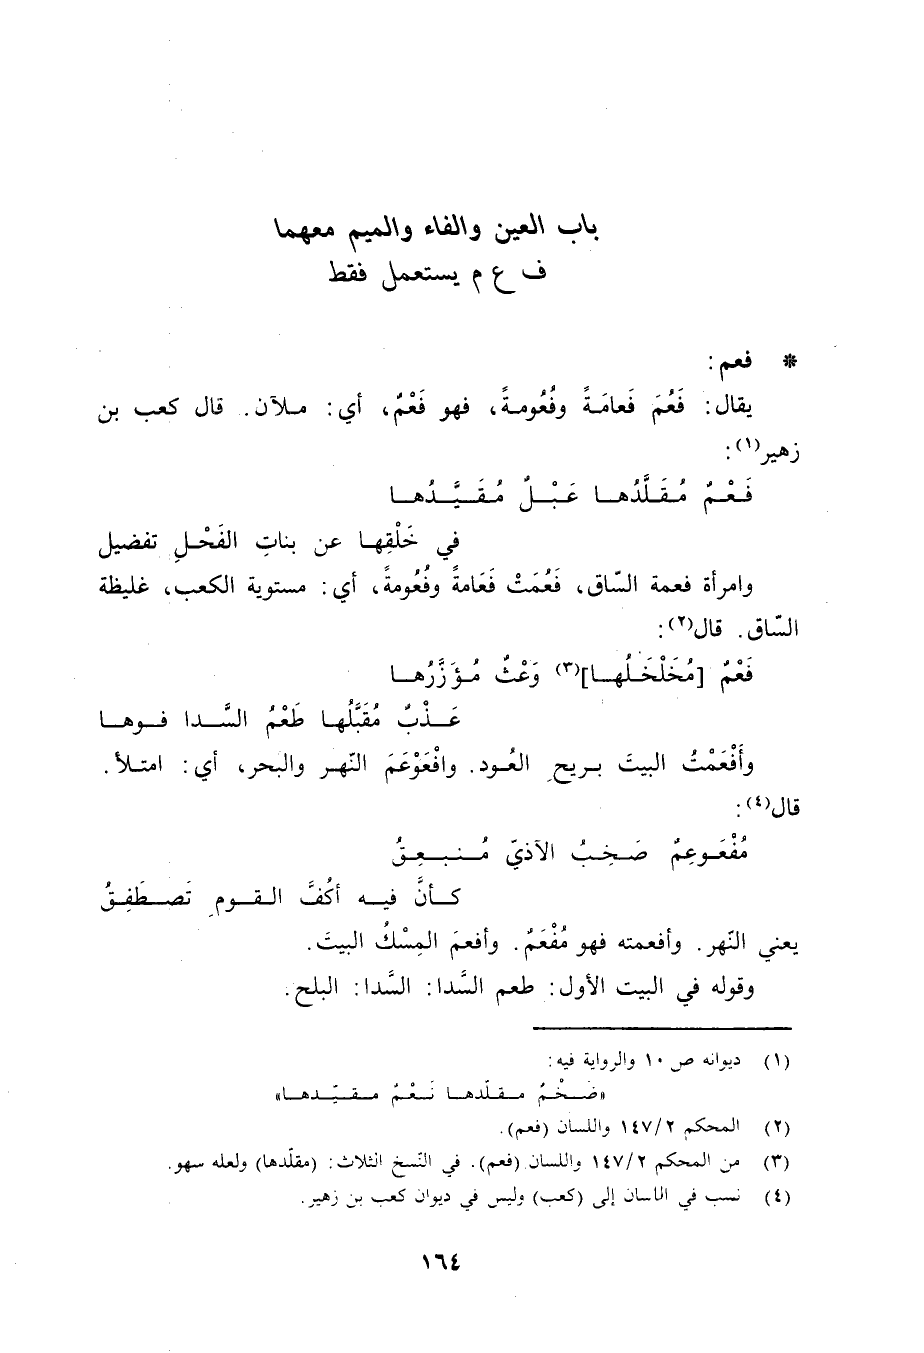 باب العين والفاء والميم معهما
ف ع م يستعمل فقط
* فعم :
يقال : فَعُمَ فَعامَةً وفُعُومةً، فهو فَعْمٌ، أي : ملآن . قال كعب بن
زهير(١) :
فَعْمٌ مُقَلَّدُها عَبْلٌ مُقَيَّدُها
في خَلْقِها عن بناتِ الفَحْلِ تفضيل
وامرأة فعمة السّاق، فَعُمَتْ فَعَامةً وفُعُومةً، أي : مستوية الكعب، غليظة
السّاق . قال(٢) :
فَعْمٌ [مُخَلْخَلُها](٣) وَعْثٌ مُؤَزَّرُها
عَذْبٌ مُقَبَّلُها طَعْمُ السَّدا فوها
وأَفْعَمْتُ البيتَ بريحِ العُود . وافْعَوْعَمَ النّهر والبحر، أي : امتلأ .
قال(٤) :
مُفْعَوعِمٌ صَخِبُ الآذيّ مُنبعِقُ
كأنَّ فيه أكُفَّ القومِ تَصطَفِقُ
يعني النّهر . وأفعمته فهو مُفْعَمٌ . وأفعمَ المِسْكُ البيتَ .
وقوله في البيت الأول : طعم السَّدا : السَّدا : البلح .
(١) ديوانه ص ١٠ والرواية فيه :
«ضَخْمٌ مقلّدها نَعْمٌ مقيّدها»
(٢) المحكم ١٤٧/٢ واللسان (فعم) .
(٣) من المحكم ١٤٧/٢ واللسان (فعم) . في النّسخ الثلاث : (مقلّدها) ولعله سهو .
(٤) نسب في اللسان إلى (كعب) وليس في ديوان كعب بن زهير .
١٦٤